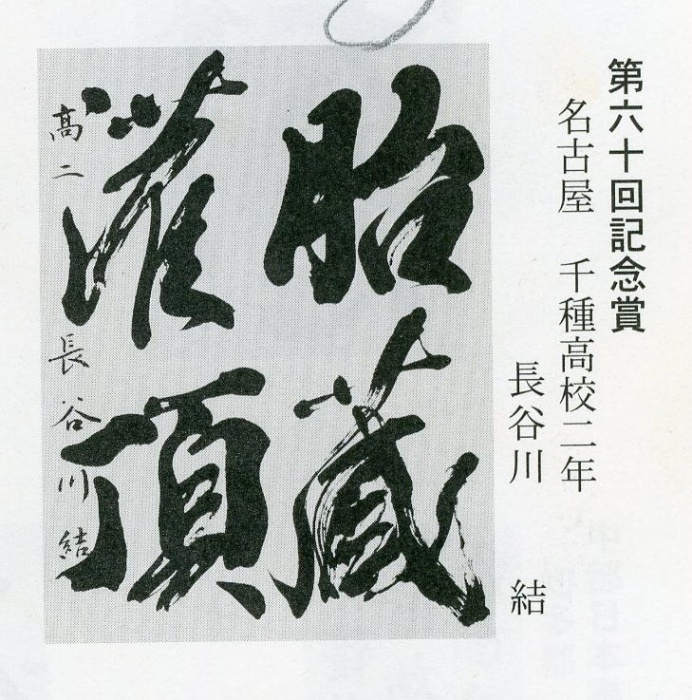 第六十回記念賞
名古屋　千種高校二年
長谷川　結
胎蔵
灌頂
高二　長谷川結